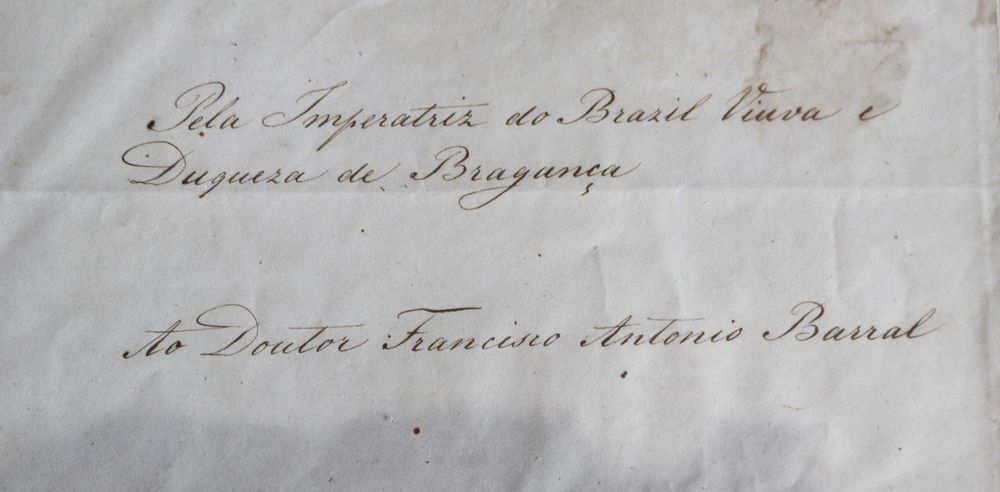 Pela Imperatriz do Brazil Viuva e
Duqueza de Bragança
Ao Doutor Francisco Antonio Barral